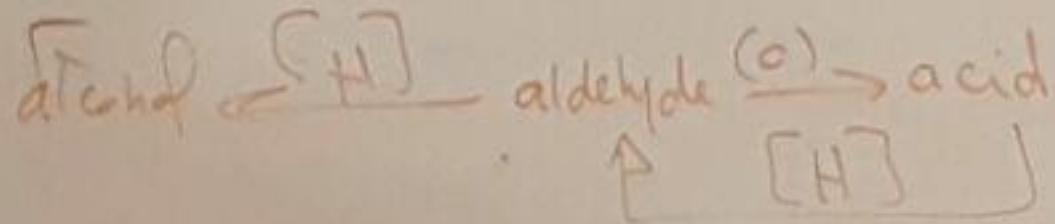 alcohol [H] aldehyde (o) acid
[H]